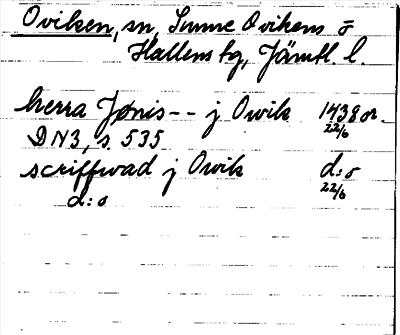 Oviken, sn, Sunne Ovikens o
Hallens tg, Jämtl. l.
herra Jønis -- j Owik 1438 or.
22/6
DN3, s. 535
scriffwad j Owik d:o
22/6
d:o